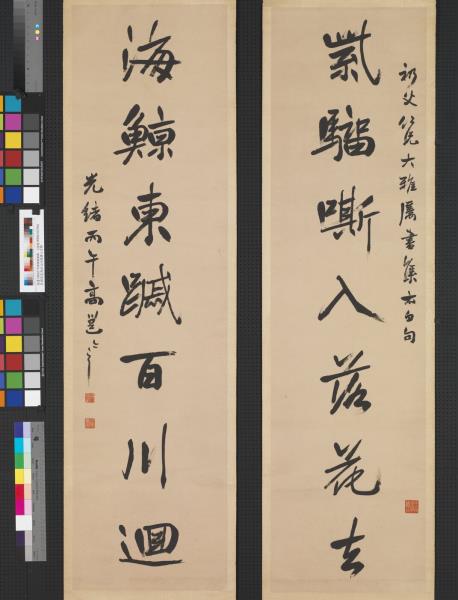 父仁兄大雅屬書集太白句
紫騮嘶入落花去
海鯨東蹙百川迴
光緒丙午高邕之